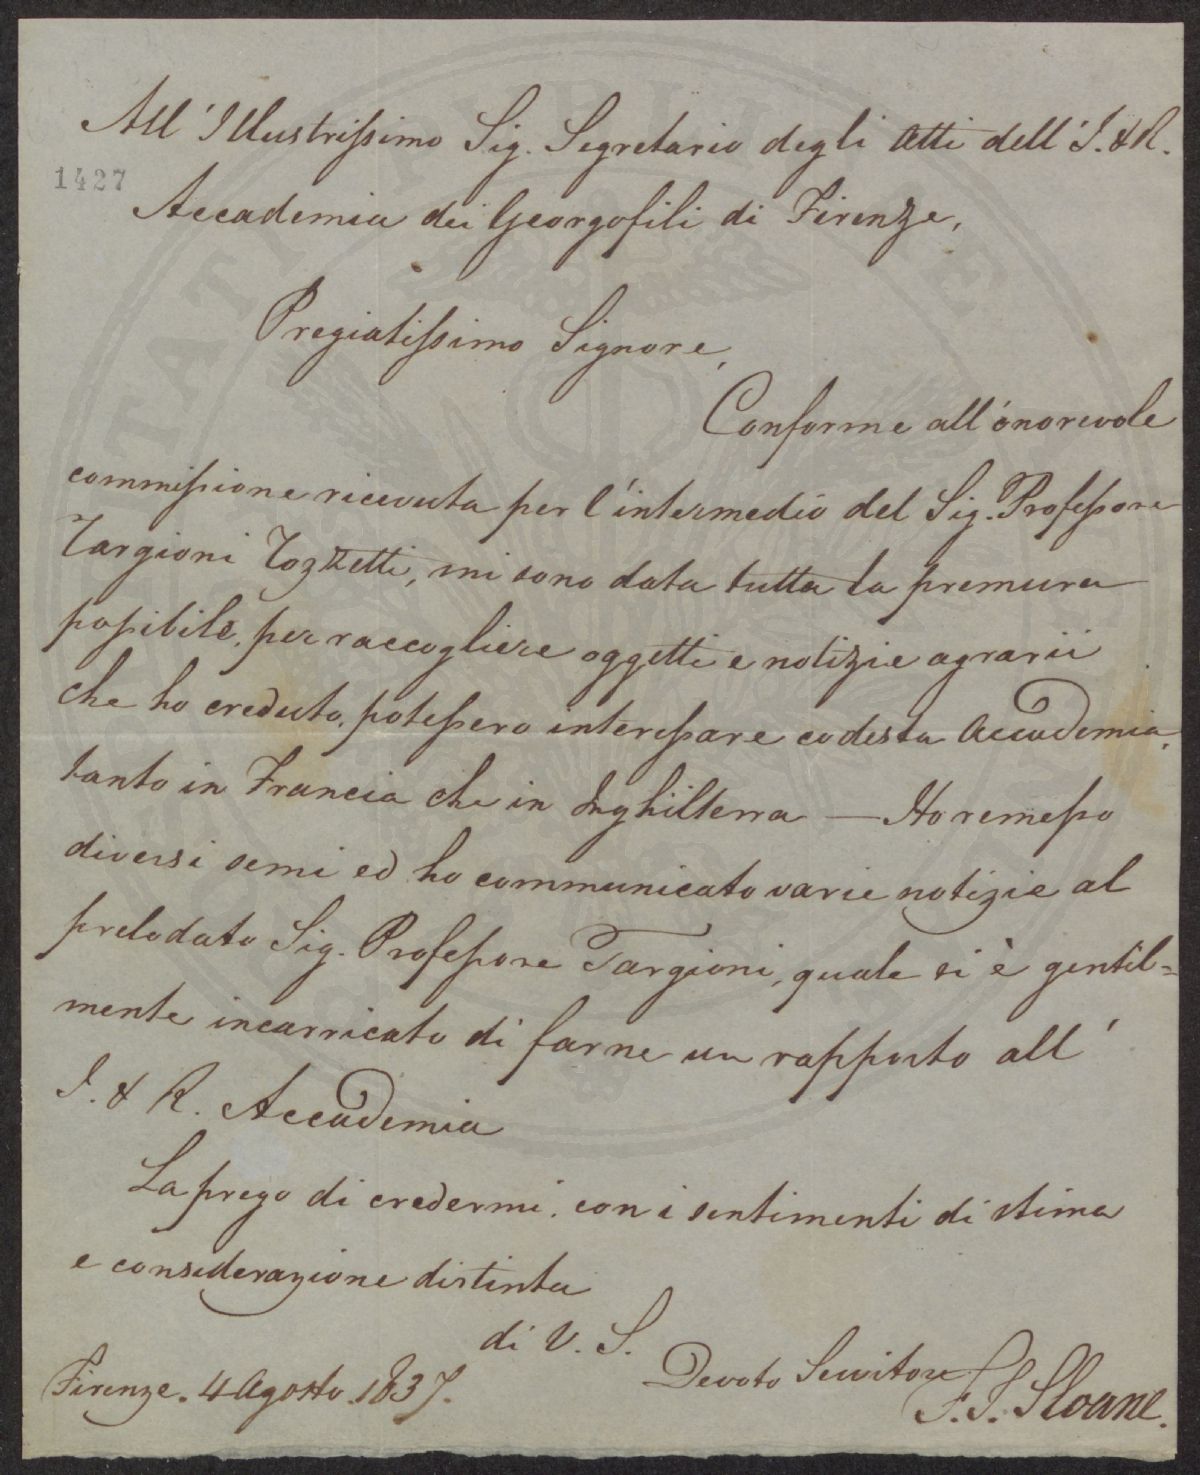 All'Illustrissimo Sig. Segretario degli Atti dell'I. & R.
1427
Accademia dei Georgofili di Firenze,
Pregiatissimo Signore,
Conforme all'onorevole
commissione ricevuta per l'intermedio del Sig. Professore
Targioni Tozzetti, mi sono data tutta la premura
possibile, per raccogliere oggetti e notizie agrarii
che ho creduto, potessero interessare codesta Accademia,
tanto in Francia che in Inghilterra — Ho remesso
diversi semi ed ho communicato varie notizie al
prelodato Sig. Professore Targioni, quale si è gentil=
mente incarricato di farne un rapporto all'
I. & R. Accademia
La prego di credermi, con i sentimenti di stima
e considerazione distinta
di V. S.
Devoto Servitore
Firenze. 4 Agosto. 1837.
F. J. Sloane.